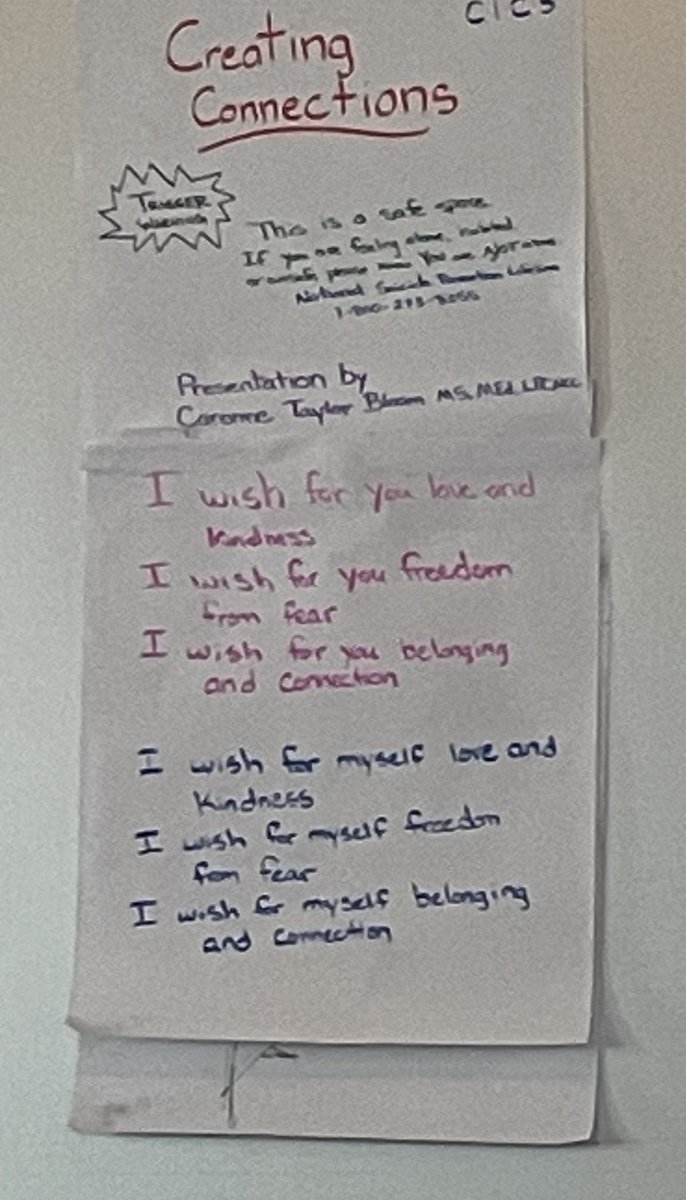 CICS
Creating
Connections
TRIGGER
WARNING
This is a safe space
If you are feeling alone,
or please know You are NOT alone
National Suicide Prevention Lifeline
1-800-273-8255
Presentation by
Taylor Bloom MS, MEd,
I wish for you love and
kindness
I wish for you freedom
from fear
I wish for you belonging
and connection
I wish for myself love and
kindness
I wish for myself freedom
from fear
I wish for myself belonging
and connection